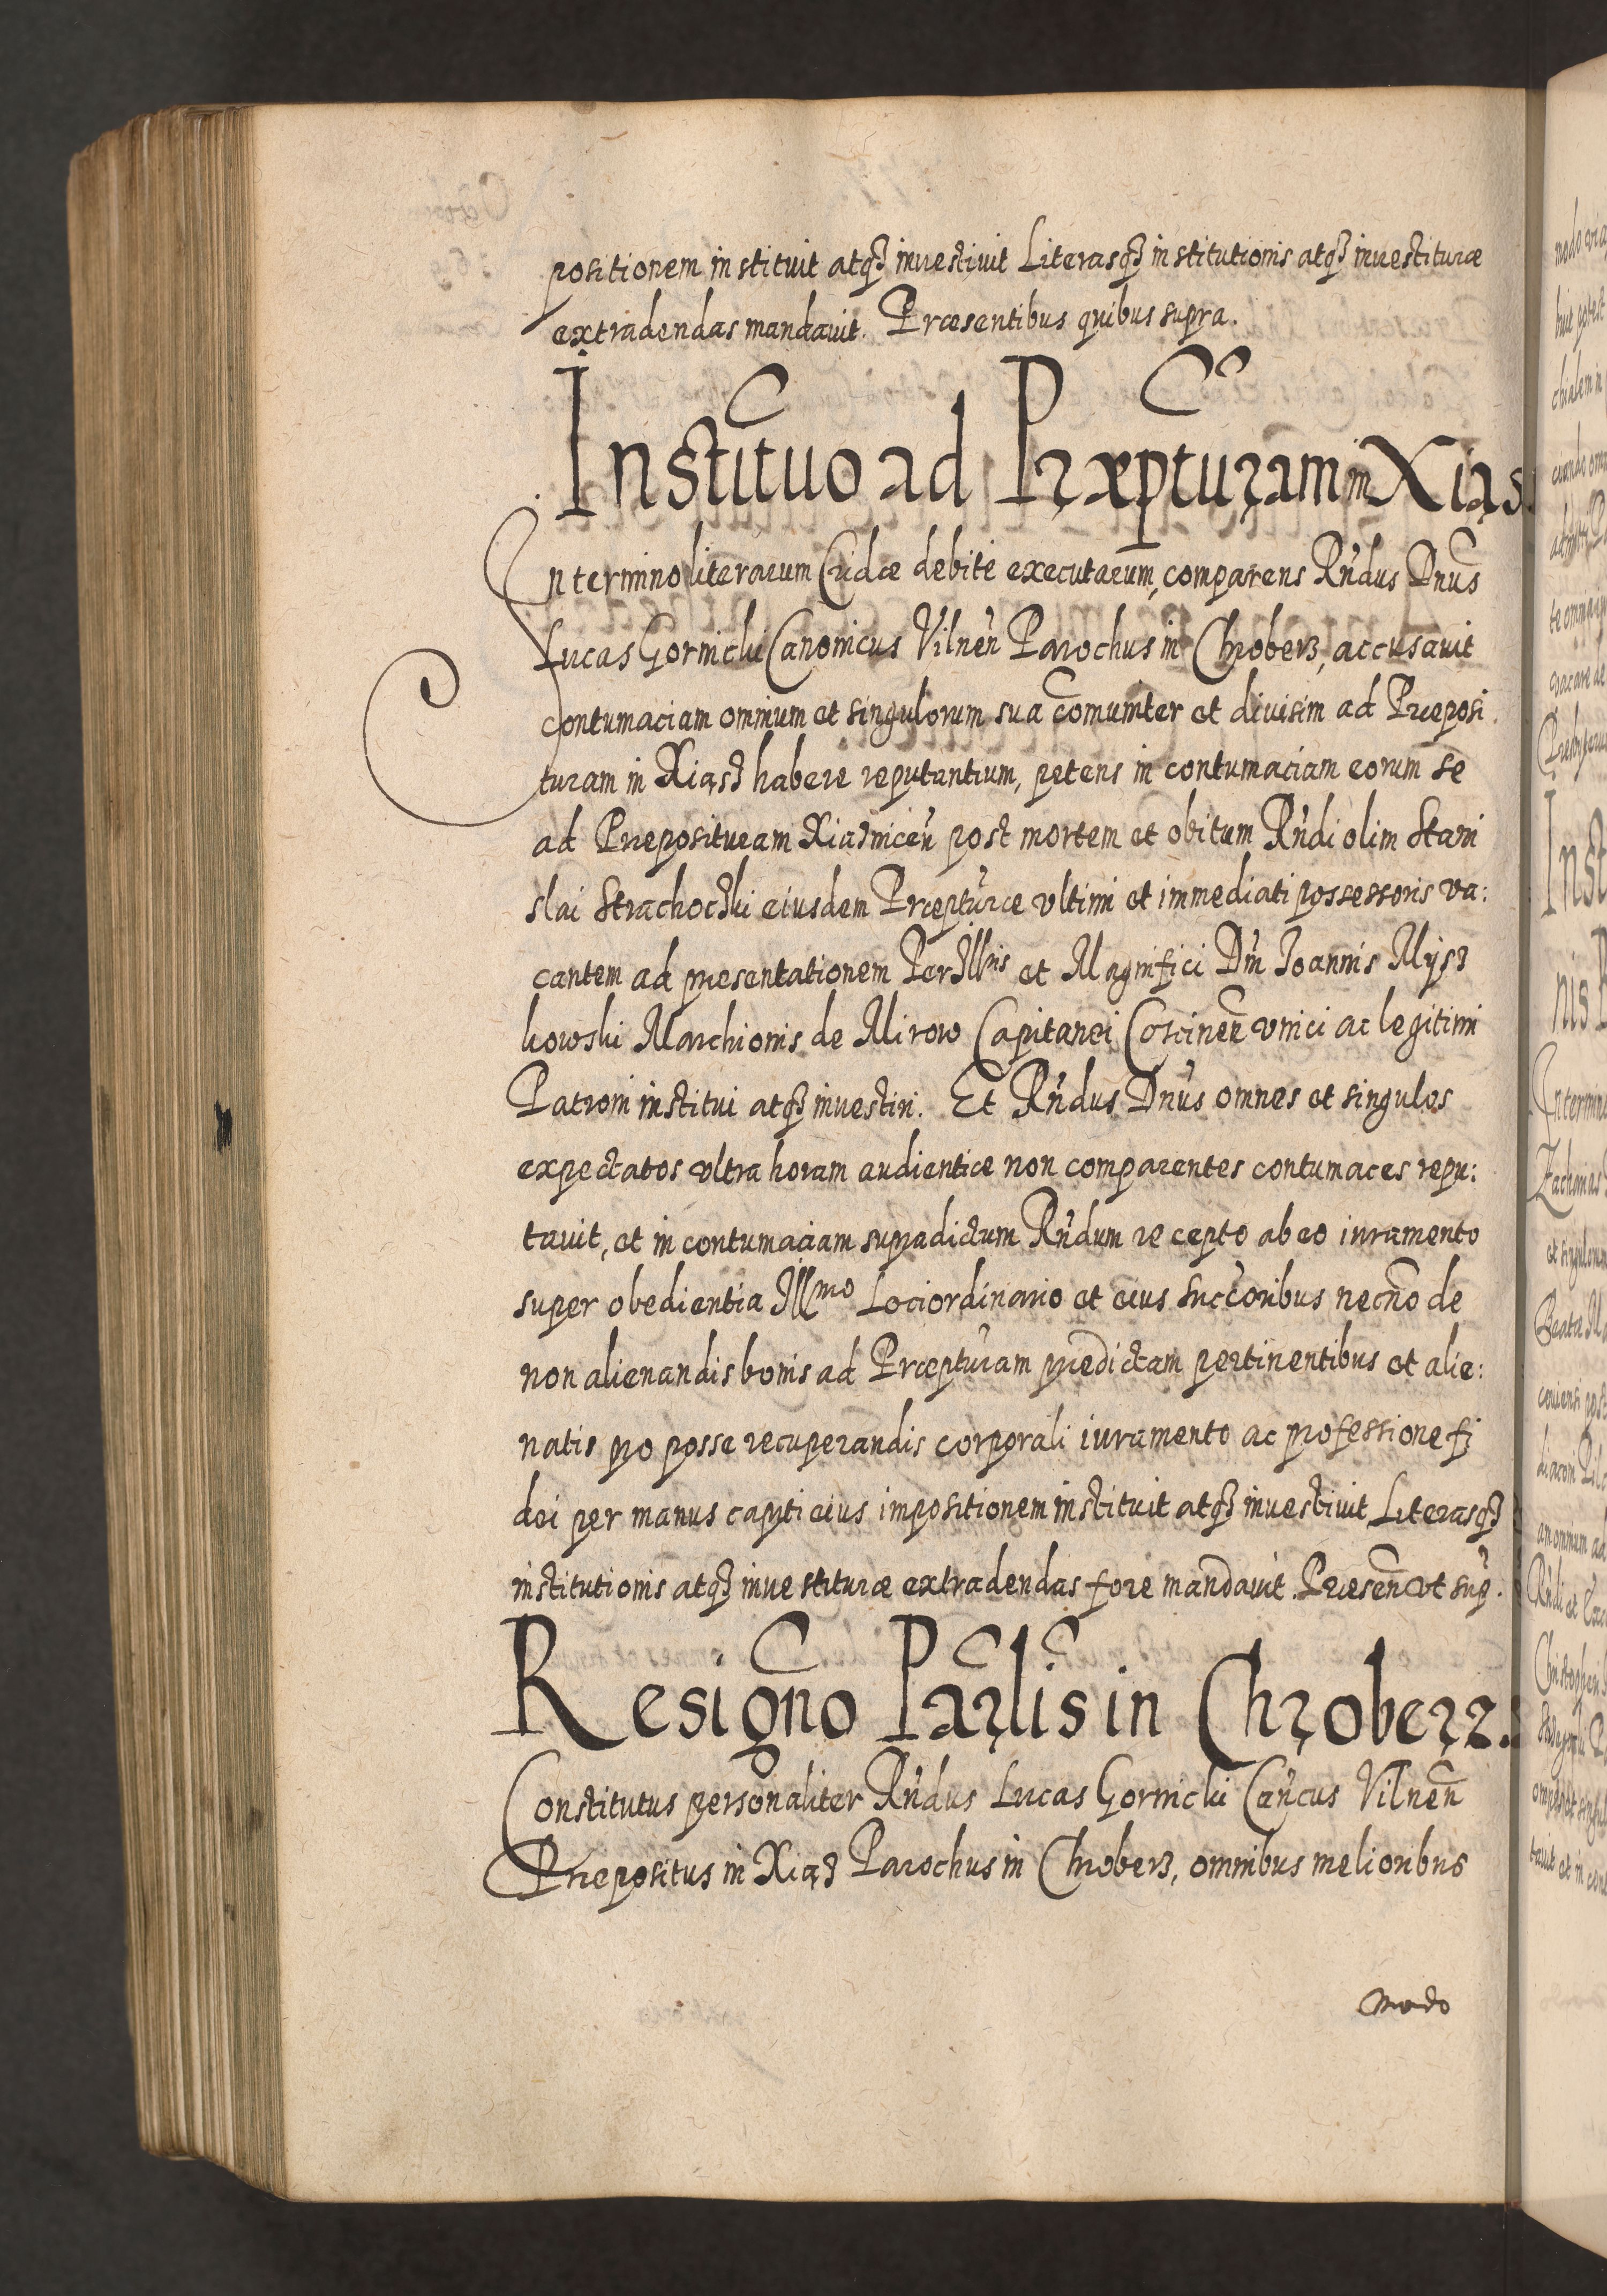 positionem instituit atq3 inuestiuit Literasq3 institutionis atq3 inuestituræ
extradendas mandauit. Præsentibus quibus supra.
Institutio ad Præpturam in Xiąs.
In termino literarum Cridæ debite executarum, comparens Rńdus Dnus
Lucas Gornicki Canonicus Vilnen Parochus in Chroberz, accusauit
contumaciam omnium et singulorum sua comuniter et diuisim ad Præposi
turam in Xiąsz habere reputantium, petens in contumaciam eorum se
ad Præposituram Xiąznicen post mortem et obitum Rńdi olim Stani
slai Strachoczki eiusdem Præpturæ vltimi et immediati possessoris va:
cantem ad præsentationem PerIllris et Magnifici Dni Joannis Mysz
kowski Marchionis de Mirow Capitanei Coscinen vnici ac legitimi
Patroni institui atq3 inuestiri. Et Rńdus Dnus omnes et singulos
expectatos vltra horam audientiæ non comparentes contumaces repu:
tauit, et in contumaciam supradictum Rńdum recepto ab eo iuramento
super obedientia Illmo Lociordinario et eius succoribus necno de
non alienandis bonis ad Præpturam prædictam pertinentibus et alie:
natis pro posse recuperandis corporali iuramento ac professione fi
dei per manus capiti eius impositionem instituit atq3 inuestiuit Literasq3
institutionis atq3 inuestituræ extradendas fore mandauit. Præsen vt sup.
Resigno Parlis in Chroberz.
Constitutus personaliter Rńdus Lucas Gornicki Cancus Vilnen
Præpositus in Xiąz Parochus in Chroberz, omnibus melioribus
modo